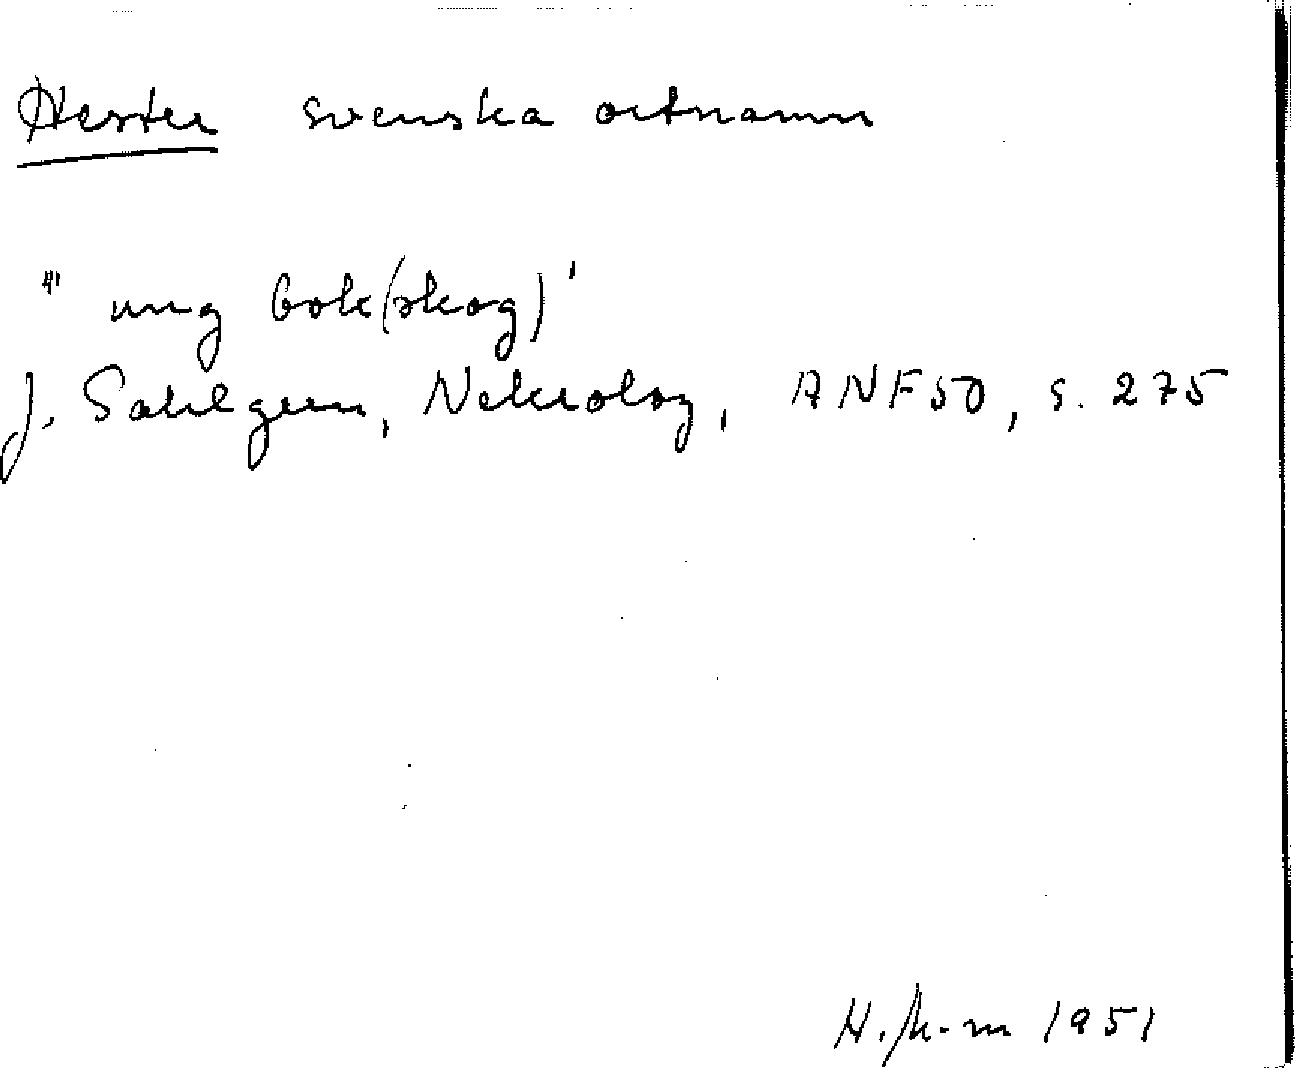 Hester svenska ortnamn
" ung bok(skog)'
J. Sahlgren, Nekrolog, ANF 50, s. 275
H. 1951